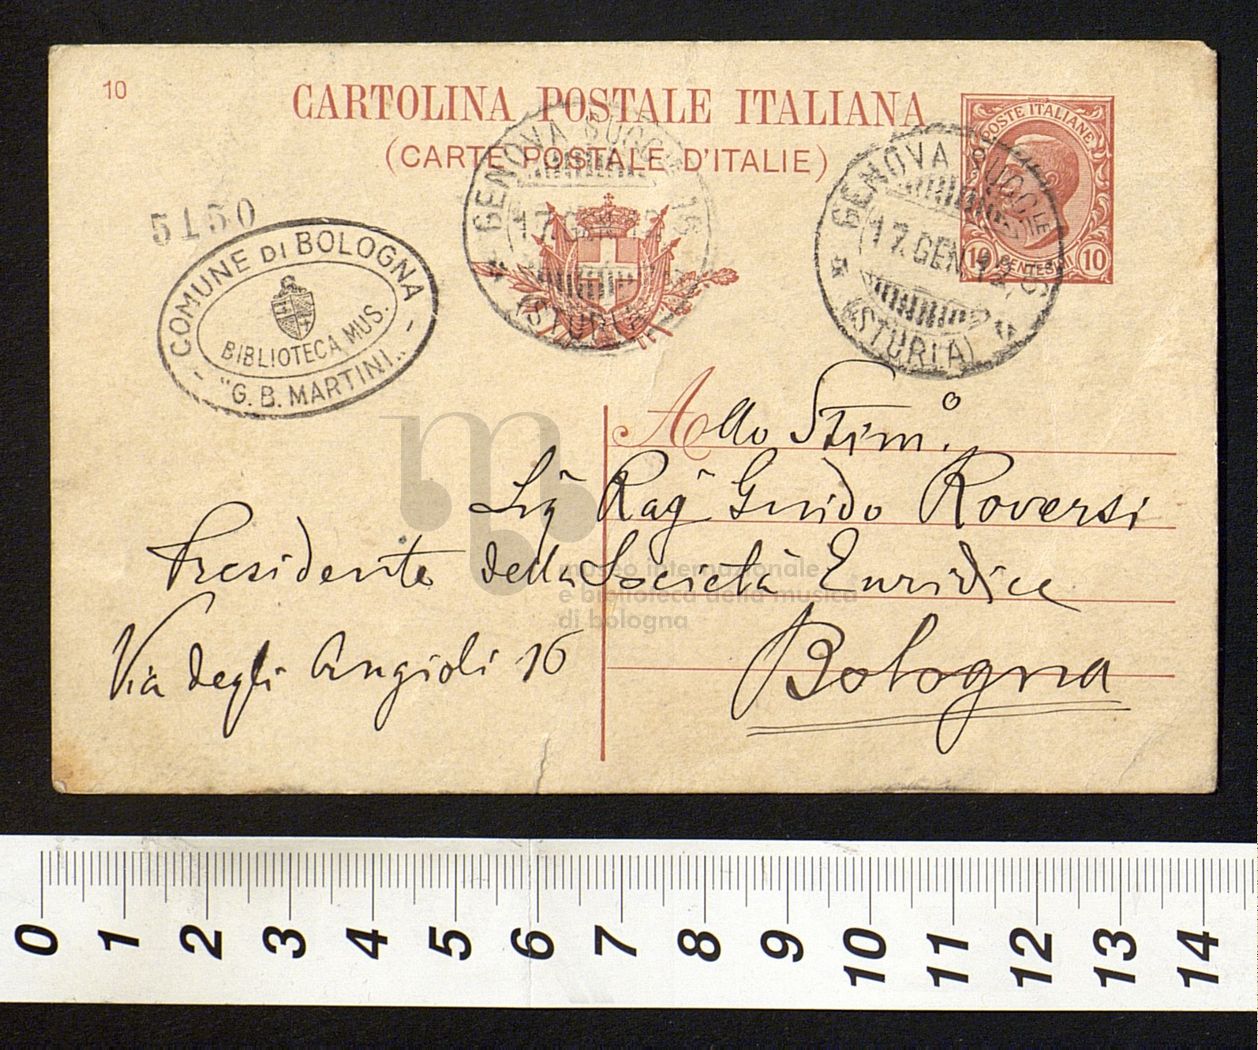 10
CARTOLINA POSTALE ITALIANA
(CARTE POSTALE D'ITALIE)
POSTE ITALIANE
10 CENTESIMI 10
GENOVA SUCCLE 16
17. GEN. 12
(STURLA)
GENOVA SUCCLE 16
17. GEN. 12
(STURLA)
5150
COMUNE DI BOLOGNA
BIBLIOTECA MUS.
"G. B. MARTINI"
Allo Stim.o
Sig Rag Guido Roversi
Presidente della Società Euridice
Via degli Angioli 16
Bologna
museo internazionale
e biblioteca della musica
di bologna
0 1 2 3 4 5 6 7 8 9 10 11 12 13 14